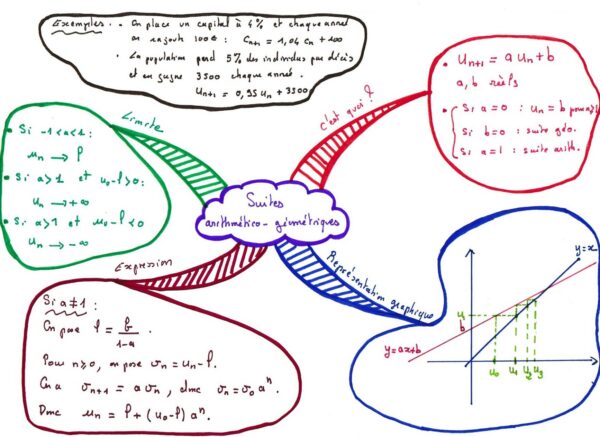 Exemples.
• On place un capital à 4% et chaque année
on rajoute 100€ : Cn+1 = 1,04 Cn + 100
• La population perd 5% des individus par décès
et en gagne 3500 chaque année.
Un+1 = 0,95 Un + 3500
c'est quoi ?
• Un+1 = a Un + b
a, b réels
• Si a=0 : Un = b pour n≥1
Si b=0 : suite géo.
Si a=1 : suite arith.
Limite
• Si -1<a<1 :
Un → l
• Si a>1 et u0-l>0 :
Un → +∞
• Si a>1 et u0-l<0
Un → -∞
Suites
arithmético-géométriques
Expression
Si a≠1 :
On pose l = b/1-a.
Pour n≥0, on pose vn = un-l.
On a vn+1 = a vn, donc vn = v0 a^n.
Donc un = l + (u0-l) a^n.
Représentation graphique
y=x
u1
b
y=ax+b
u0 u1 u2 u3